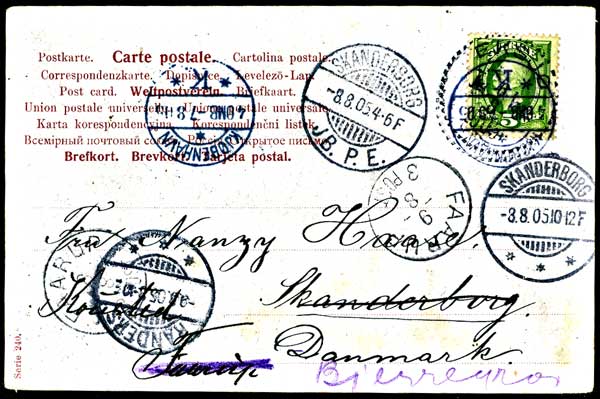 Postkarte. Carte postale. Cartolina postale.
Correspondenzkarte. Dopisnice. Levelező-Lap.
Post card. Weltpostverein. Briefkaart.
Union postale universelle. Union postale universale.
Karta korespondencyjna. Korespondenční listek.
Всемірный почтовый союзъ. Россія. Открытое письмо.
Brefkort. Brevkort. Tarjeta postal.
SKANDERBORG
-8.8.05.4-6F
JB.P.E.
KJØBENHAVN
K
SKANDERBORG
-8.8.05.10-12F
FAARUP
9-8-
3 POST
5
Fru Nanzy Haase.
Skanderborg.
Danmark.
Faarup
AARUP
SKANDERB
Serie 240.